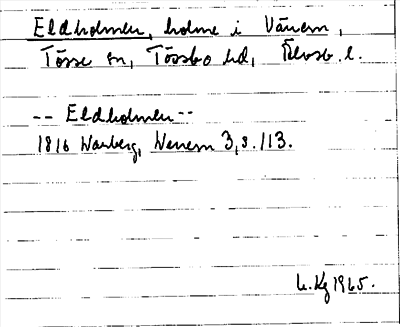 Eldholmen, holme i Vänern,
Tösse sn, Tössbo hd, Älvsb. l.
-- Eldholmen --
1816 Warberg, Wenern 3, s. 113.
U. Kg 1965.